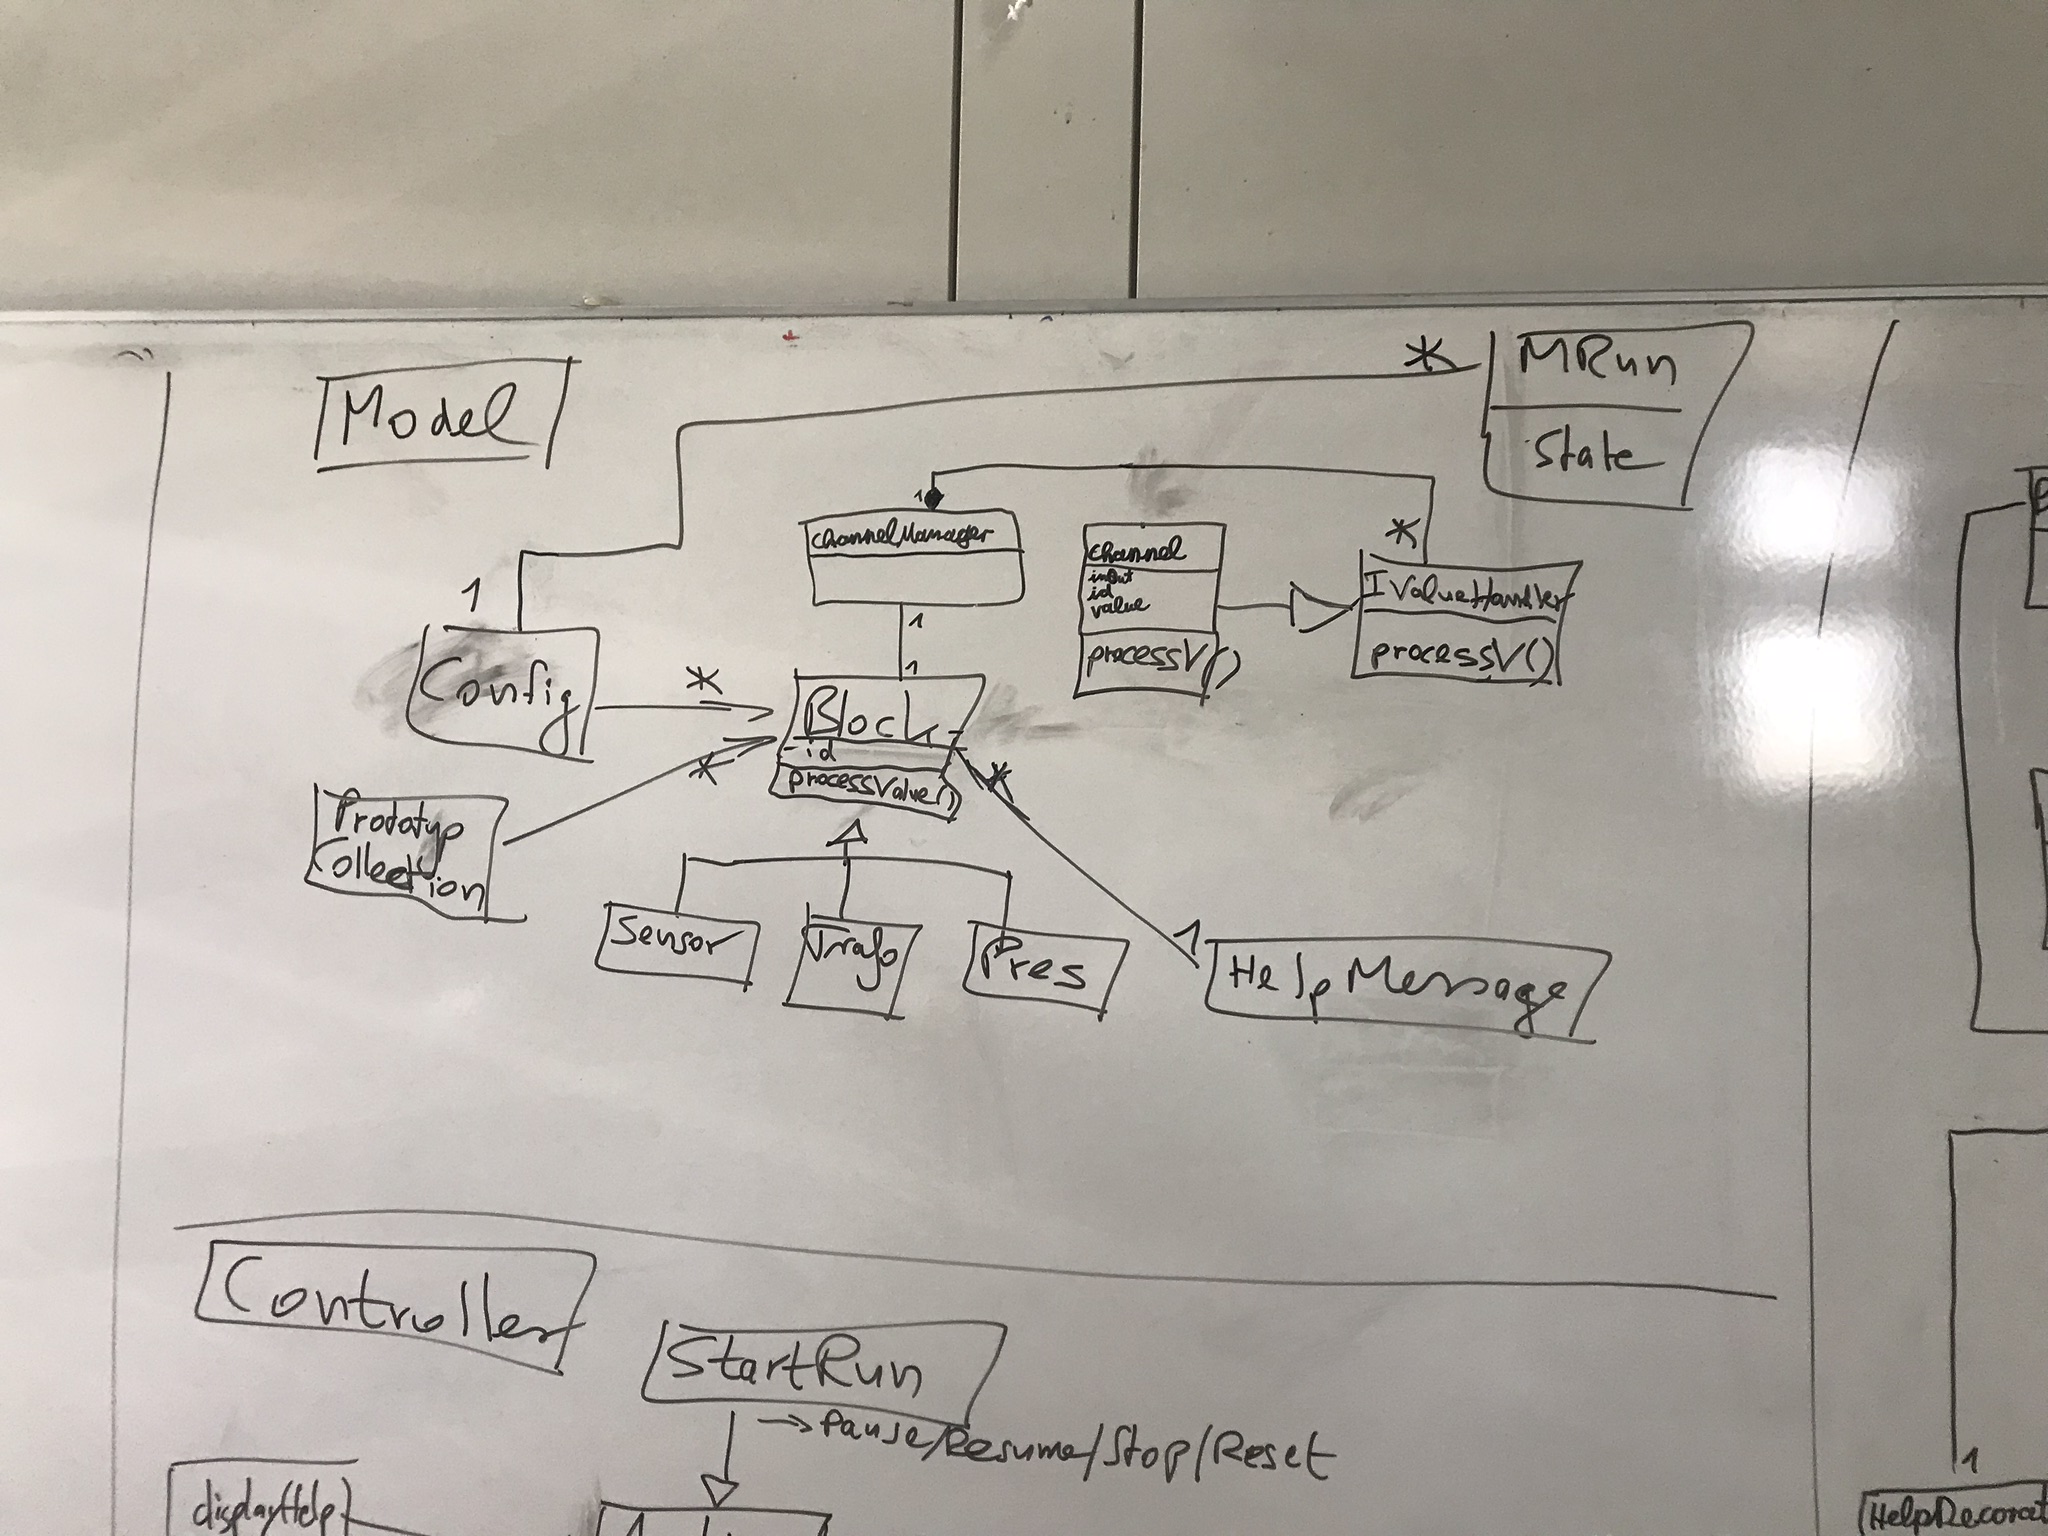 Model
*
MRun
State
1
channelManager
channel
inOut
id
value
processV()
*
IValueHandler
processV()
1
1
1
Config
*
Block
id
processValue()
*
*
Prototyp
Collection
Sensor
Trafo
Pres
1
HelpMessage
Controller
StartRun
→ Pause/Resume/Stop/Reset
displayHelp
1
HelpDecorat